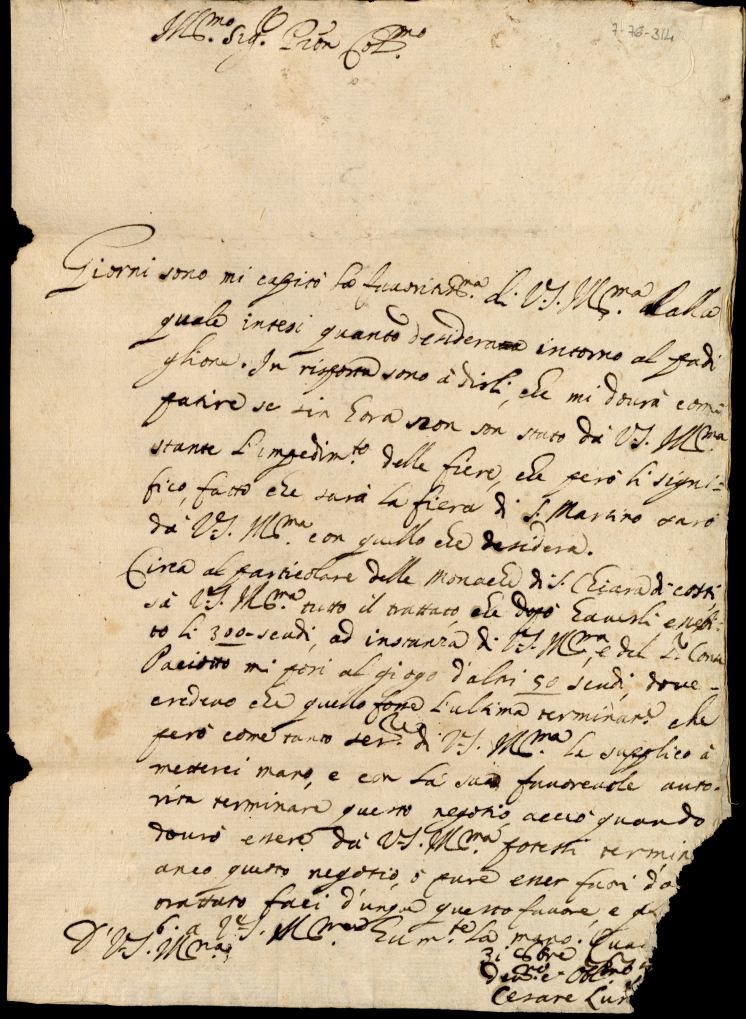 Ill.mo Sig.r Pron Col.mo
7-76-314
Giorni sono mi capitò la favoritiss.ma di V.S. Ill.ma dalla
quale intesi quanto desidera intorno al padi
glione. In risposta sono à dirli, che mi dourà comé
patire se sin hora non son stato dà V.S. Ill.ma
stante l'impedim.to delle fiere, che però li signi-
fico, fatto che sarà la fiera di S. Martino sarò
dà V.S. Ill.ma con quello che desidera.
Circa al particolare delle monache di S. Chiara di costi
sà V.S. Ill.ma tutto il trattato, che dopò hauerli
to li 300 scudi, ad instanza di V.S. Ill.ma, e del S.r Conte
Paciotto mi posi al giogo d'altri 50 scudi, doue
credeuo che quello fosse l'ultima terminat.e che
però come tanto ser.re di V.S. Ill.ma la supplico à
metterci mano, e con la sua fauoreuole auto-
rità terminare questo negotio, acciò quando
dourò essere dà V.S. Ill.ma potessi termin
anco questo negotio, ò pure esser fuori d'o
trattato facci d'unque questo fauore, e
à V.S. Ill.ma hum.te la mano.
D' V.S. Ill.ma
31 8bre
Deu.mo e
Cesare